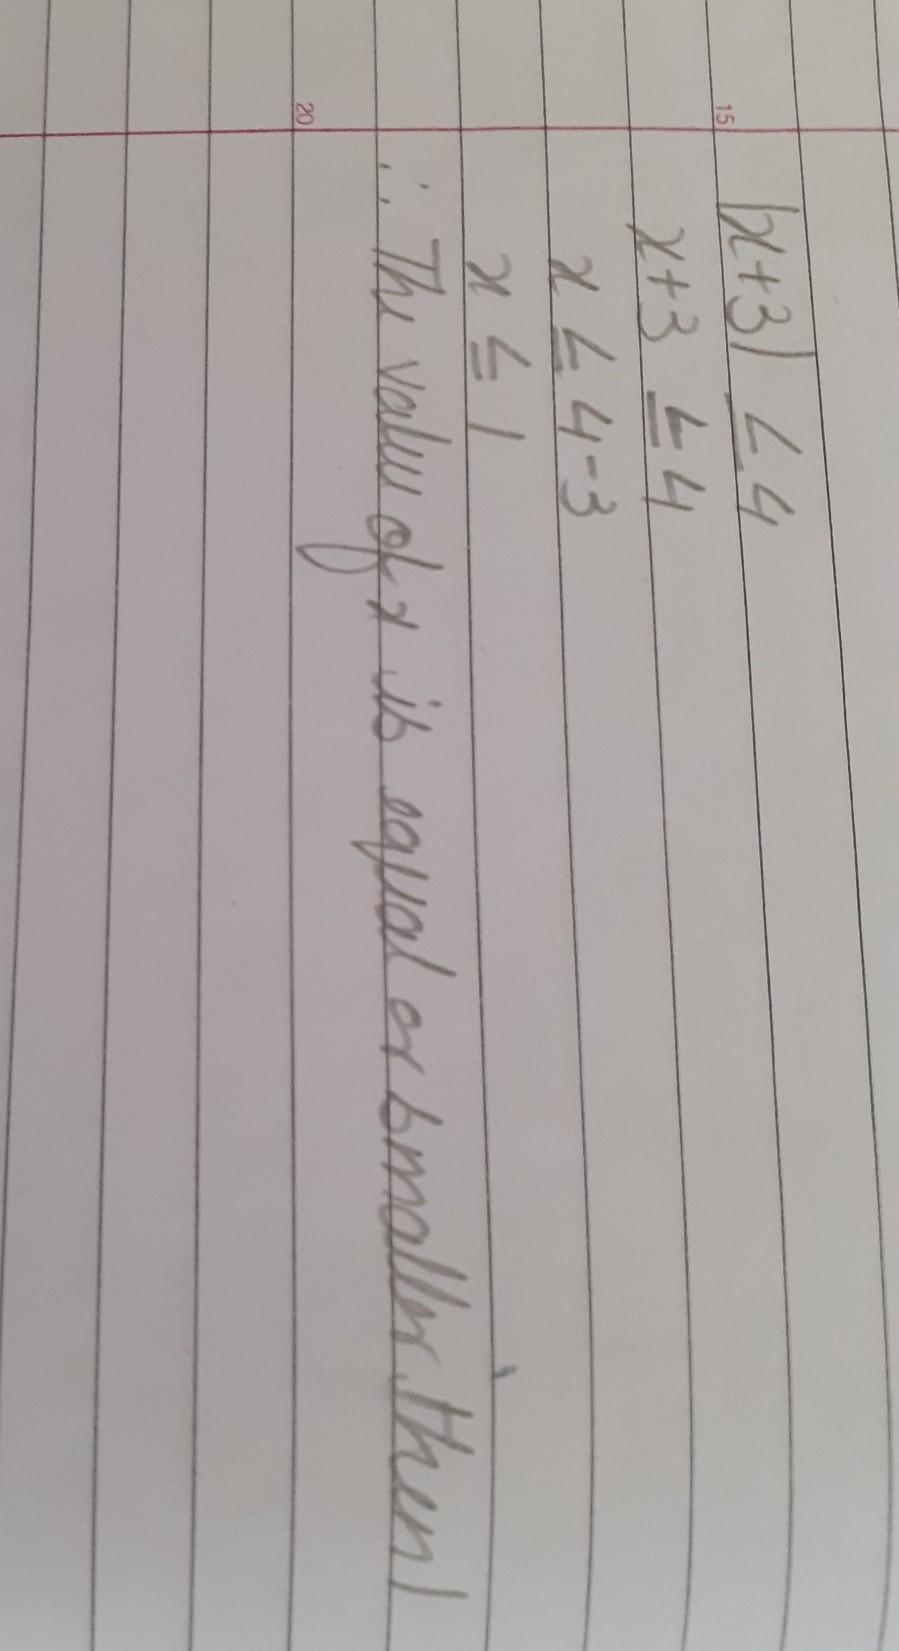 15 |x+3| ≤ 4
x+3 ≤ 4
x ≤ 4-3
x ≤ 1
∴ The value of x is equal or smaller then 1
20